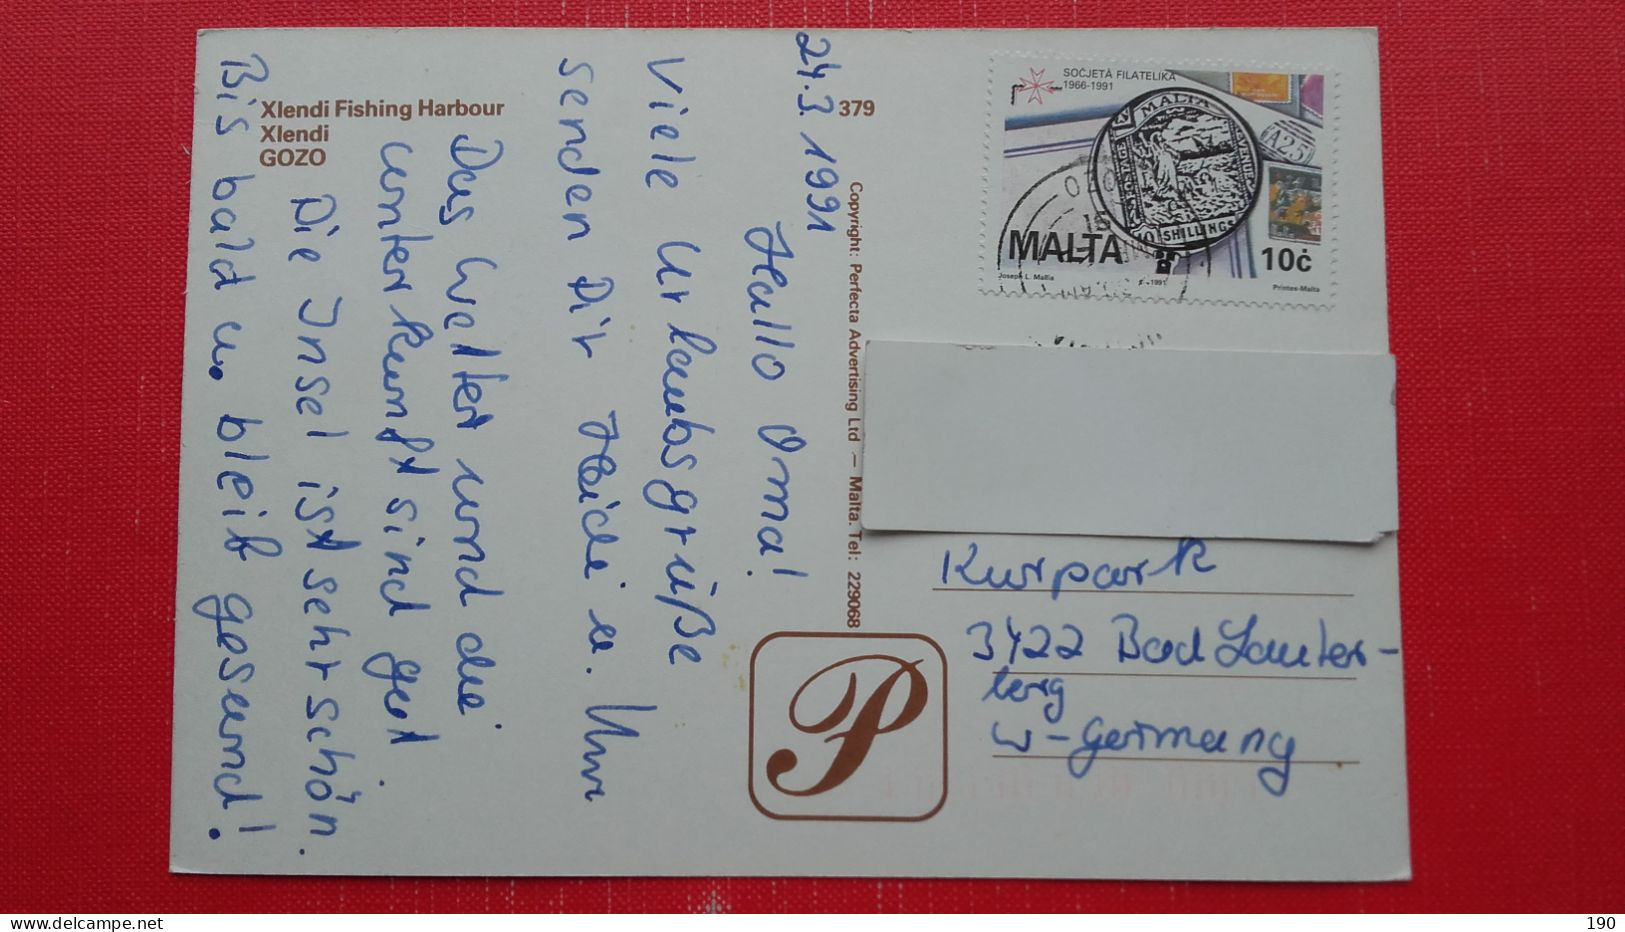 Xlendi Fishing Harbour
Xlendi
GOZO
379
Copyright: Perfecta Advertising Ltd — Malta. Tel: 229068
P
24.3.1991
Hallo Oma!
Viele Urlaubsgrüße
senden Dir Heide u.
Das Wetter und die
Unterkunft sind gut.
Die Insel ist sehr schön.
Bis bald u. bleib gesund!
SOĊJETÀ FILATELIKA
1966-1991
MALTA
A25
10 SHILLINGS
MALTA
10ċ
Joseph L. Mallia
1991
Printex-Malta
Kurpark
3422 Bad Lauter-
berg
W-Germany
190